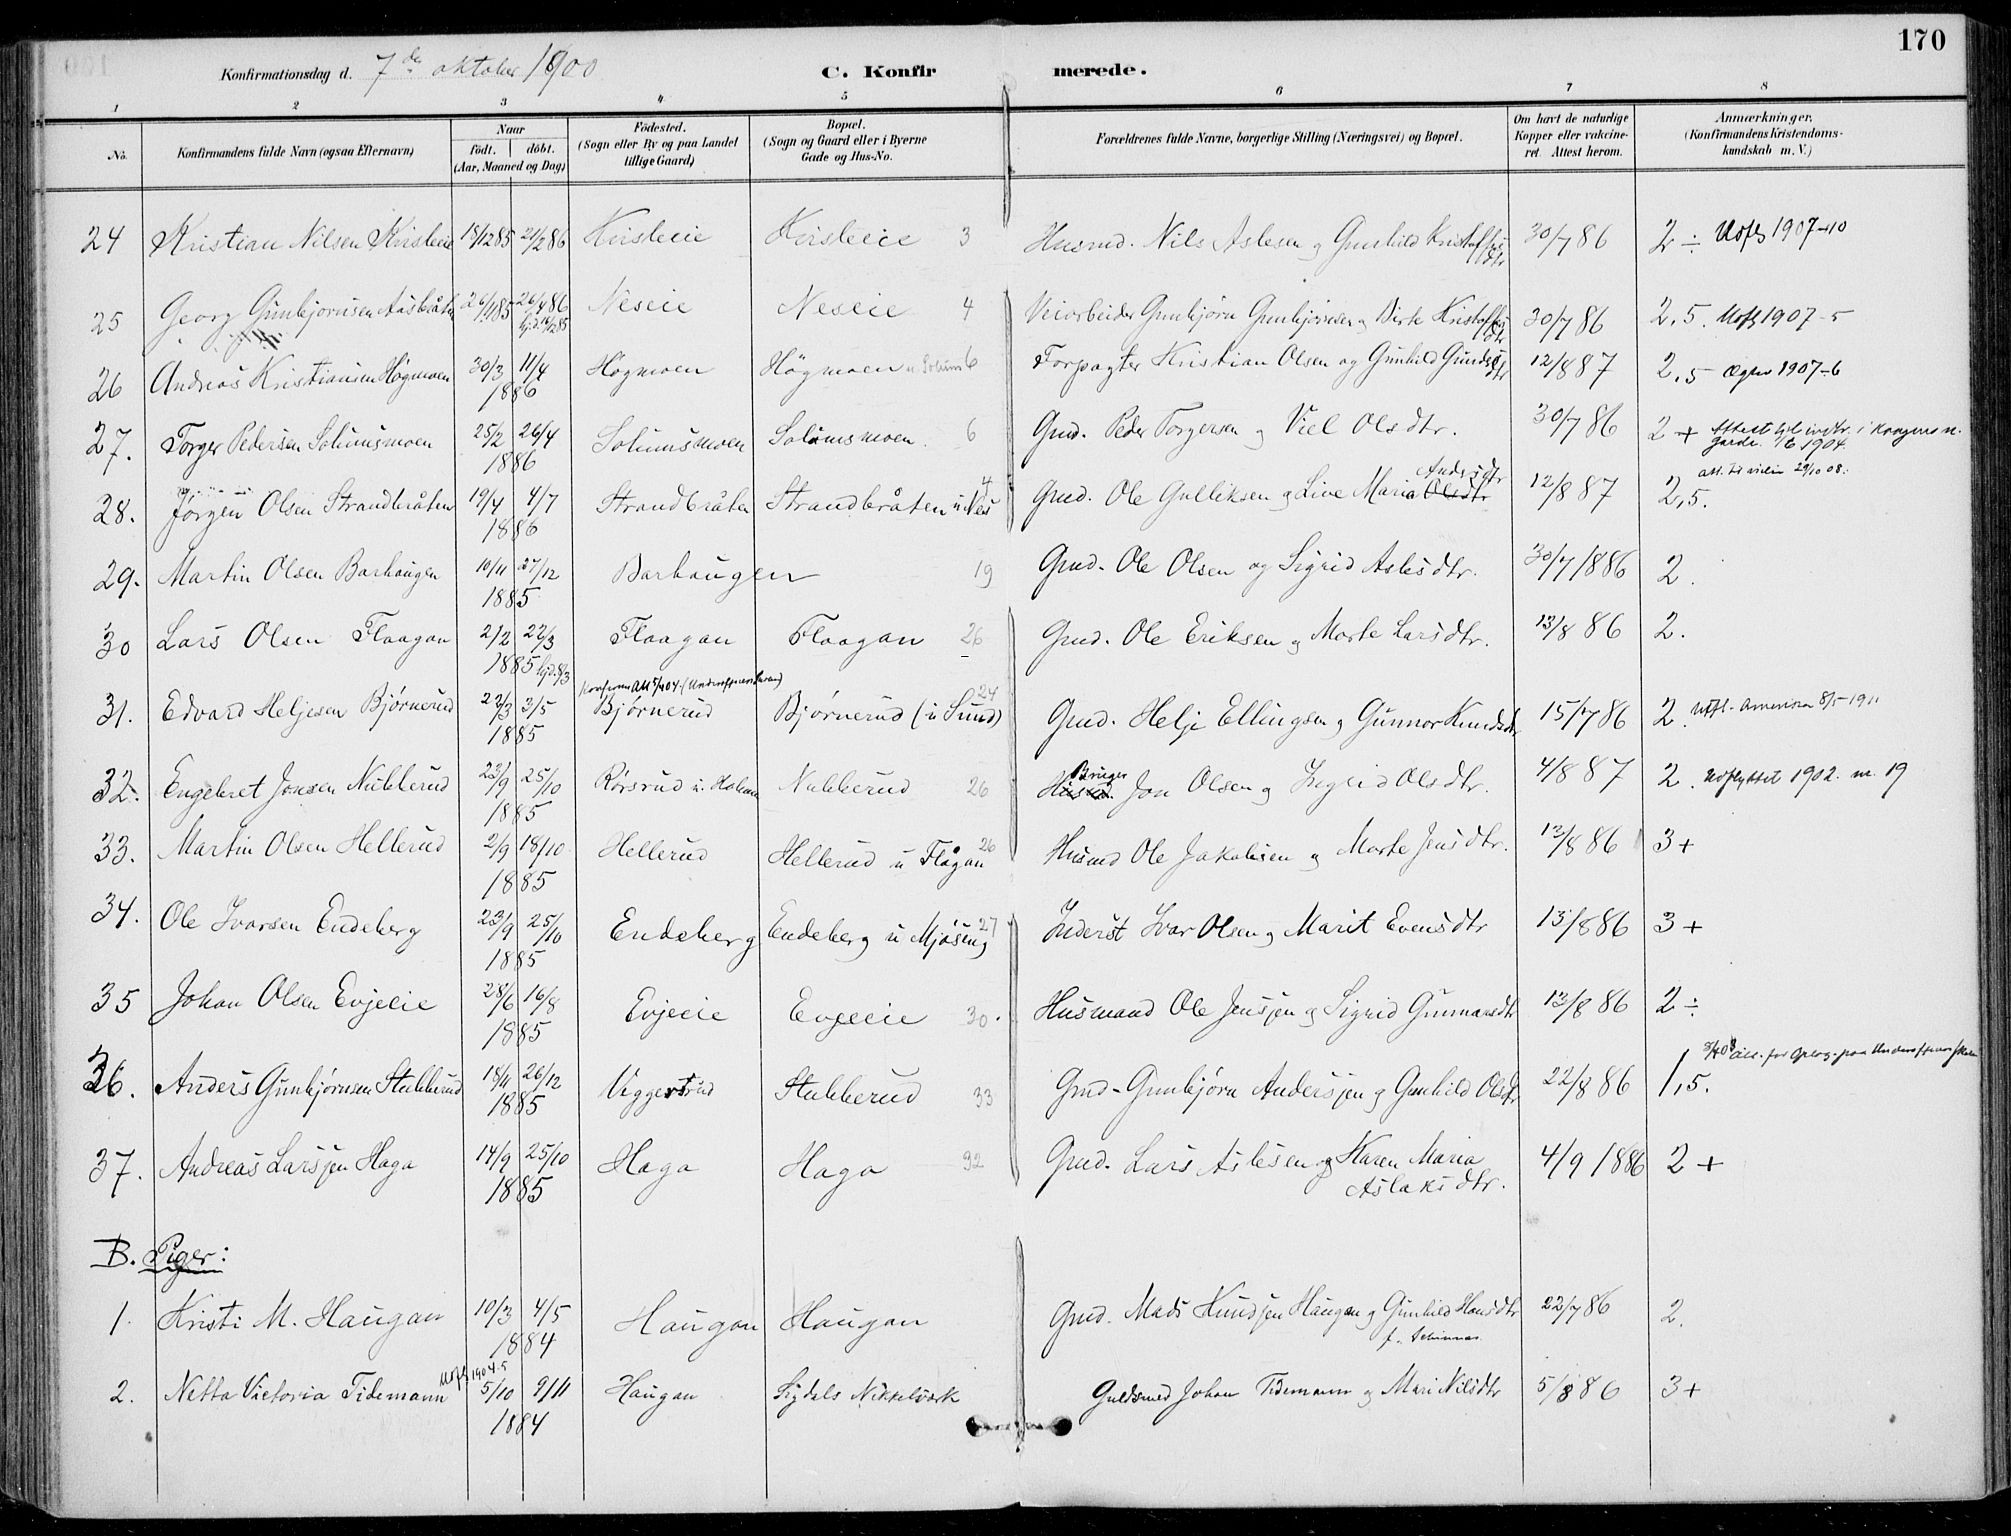 170
Konfirmationsdag d. 7de oktober 1900
C. Konfir merede.
1 2 3 4 5 6 7 8
No.
Konfirmandens fulde Navn (ogsaa Efternavn)
Naar
födt. döbt.
(Aar, Maaned og Dag)
Födested.
(Sogn eller By og paa Landet
tillige Gaard)
Bopæl.
(Sogn og Gaard eller i Byerne
Gade og Hus-No.
Forældrenes fulde Navne, borgerlige Stilling (Næringsvei) og Bopæl.
Om havt de naturlige
Kopper eller vakcine-
ret. Attest herom.
Anmærkninger,
(Konfirmandens Kristendoms-
kundskab m. V.)
24 Kristian Nilsen Kristeie 18/12 85 21/2 86 Kristeie Kristeie 3 Husmd. Nils Aslesen og Gunhild Kristoffersdtr 30/7 86 2 ÷ Udfl 1907-10
25 Georg Gunbjørnsen Aasbråten 26/11 85 26/4 86 Neseie Neseie 4 Veiarbeider Gunbjørn Gunbjørnsen og Birte Kristoffersdtr 30/7 86 2,5. Udfl 1907-5
hjd. 14/12 85
26 Andreas Kristiansen Høgmoen 30/3 11/4 Høgmoen Högmoen u. Solum 6 Forpagter Kristian Olsen og Gunhild Gundersdtr 12/8 87 2,5 Ægtev 1907-6
1886
27. Torger Pedersen Solumsmoen 25/2 26/4 Solumsmoen Solumsmoen. 6 Gmd. Peder Torgersen og Viel Olsdtr. 30/7 86 2 + Attest til indtr. i Kongens n.
garde. 1/6 1904.
1886
28. Jörgen Olsen Strandbråten 19/4 4/7 Strandbråten Strandbråten u Nes 4 Gmd. Ole Gulliksen og Live Maria Olsdtr Andersdtr 12/8 87 2,5.
att. til vielse 29/10 08.
1886
29. Martin Olsen Barhaugen 10/11 27/12 Barhaugen 19 Gmd. Ole Olsen og Sigrid Aslesdtr. 30/7 1886 2.
1885
30 Lars Olsen Flaagan 2/2 22/3 Flaagan Flaagan 26 Gmd. Ole Eriksen og Marte Larsdtr. 13/8 86 2.
1885 hjd. 8/3
31. Edvard Heljesen Bjørnerud 22/3 3/5 Bjørnerud Bjørnerud (u Sund) 24 Gmd. Helje Ellingsen og Gunnor Knudsdtr 15/7 86 2. Utfl. Amerika 8/5 1911
1885
32. Engebret Jonsen Nubberud 23/9 25/10 Rørsrud u. Holmen Nubberud 26 Husmd. Bruger Jon Olsen og Ingrid Olsdtr. 4/8 87 2. Udflyttet 1902. n. 19
1885
33. Martin Olsen Hellerud 2/9 18/10 Hellerud Hellerud u Flågan 26 Husmd Ole Jakobsen og Marte Jensdtr. 13/8 86 3+
1885
34. Ole Ivarsen Endeberg 23/9 25/10 Endeberg Endeberg u Mjøseng 27 Inderst Ivar Olsen og Marit Evensdtr 13/8 86 3+
1885
35 Johan Olsen Evjeeie 28/6 16/8 Evjeeie Evjeeie 30. Husmand Ole Jenssen og Sigrid Gunnarsdtr 13/8 86 2 ÷
1885
36. Anders Gunbjørnsen Stubberud 18/11 26/12 Viggersrud Stubberud 33 Gmd. Gunbjørn Anderssen og Gunhild Olsdtr 22/8 86 1,5.
1885
37. Andreas Larssen Haga 14/9 25/10 Haga Haga 32 Gmd. Lars Aslesen og Karen Maria
Aslaksdtr. 4/9 1886 2 +
1885
B. Piger:
1. Kristi M. Haugan 10/3 4/5 Haugan Haugan Gmd. Mads Knudssen Haugan og Gunhild Hansdtr 22/7 86 2.
1884
2. Netta Victoria Tidemann Udfl 1904-5 5/10 9/11 Haugan Sigdals Nikkelværk Guldsmed Johan Tidemann og Mari Nilsdtr 5/8 86 3+
1884